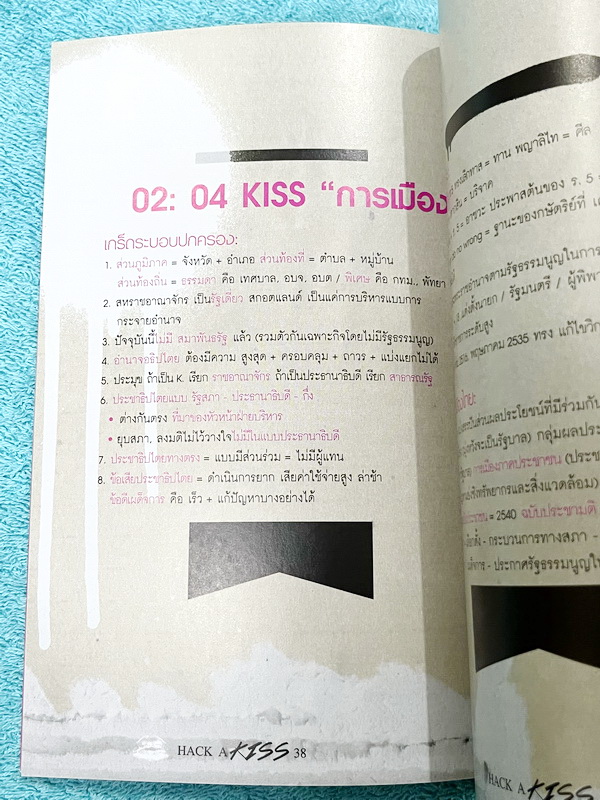 02: 04 KISS "การเมือง
เกร็ดระบอบปกครอง:
1. ส่วนภูมิภาค = จังหวัด + อำเภอ ส่วนท้องที่ = ตำบล + หมู่บ้าน
ส่วนท้องถิ่น = ธรรมดา คือ เทศบาล, อบจ, อบต / พิเศษ คือ กทม., พัทยา
2. สหราชอาณาจักร เป็นรัฐเดี่ยว สกอตแลนด์ เป็นแค่การบริหารแบบการ
กระจายอำนาจ
3. ปัจจุบันนี้ไม่มี สมาพันธรัฐ แล้ว (รวมตัวกันเฉพาะกิจโดยไม่มีรัฐธรรมนูญ)
4. อำนาจอธิปไตย ต้องมีความ สูงสุด + ครอบคลุม + ถาวร + แบ่งแยกไม่ได้
5. ประมุข ถ้าเป็น K. เรียก ราชอาณาจักร ถ้าเป็นประธานาธิบดี เรียก สาธารณรัฐ
6. ประชาธิปไตยแบบ รัฐสภา - ประธานาธิบดี - กึ่ง
• ต่างกันตรง ที่มาของหัวหน้าฝ่ายบริหาร
• ยุบสภา, ลงมติไม่ไว้วางใจไม่มีในแบบประธานาธิบดี
7. ประชาธิปไตยทางตรง = แบบมีส่วนร่วม = ไม่มีผู้แทน
8. ข้อเสียประชาธิปไตย = ดำเนินการยาก เสียค่าใช้จ่ายสูง ล่าช้า
ข้อดีเผด็จการ คือ เร็ว + แก้ปัญหาบางอย่างได้
HACK A KISS 38
= ทาน พญาลิไท = ศีล
= บริจาค
= อาชวะ ประพาสต้นของ ร. 5
no wrong = ฐานะของกษัตริย์ที่
อำนาจตามรัฐธรรมนูญในการ
แต่งตั้งนายก / รัฐมนตรี / ผู้พิพา
ราชการระดับสูง
พฤษภาคม 2535 ทรง แก้ไขวิก
ไทย:
เป็นส่วนผลประโยชน์ที่มีร่วมกัน
จะเป็นรัฐบาล) กลุ่มผลประ
การเมืองภาคประชาชน (ประช
ทรัพยากรและสิ่งแวดล้อม)
= 2540 ฉบับประชามติ
- กระบวนการทางสภา -
- ประกาศรัฐธรรมนูญให
HACK A KISS